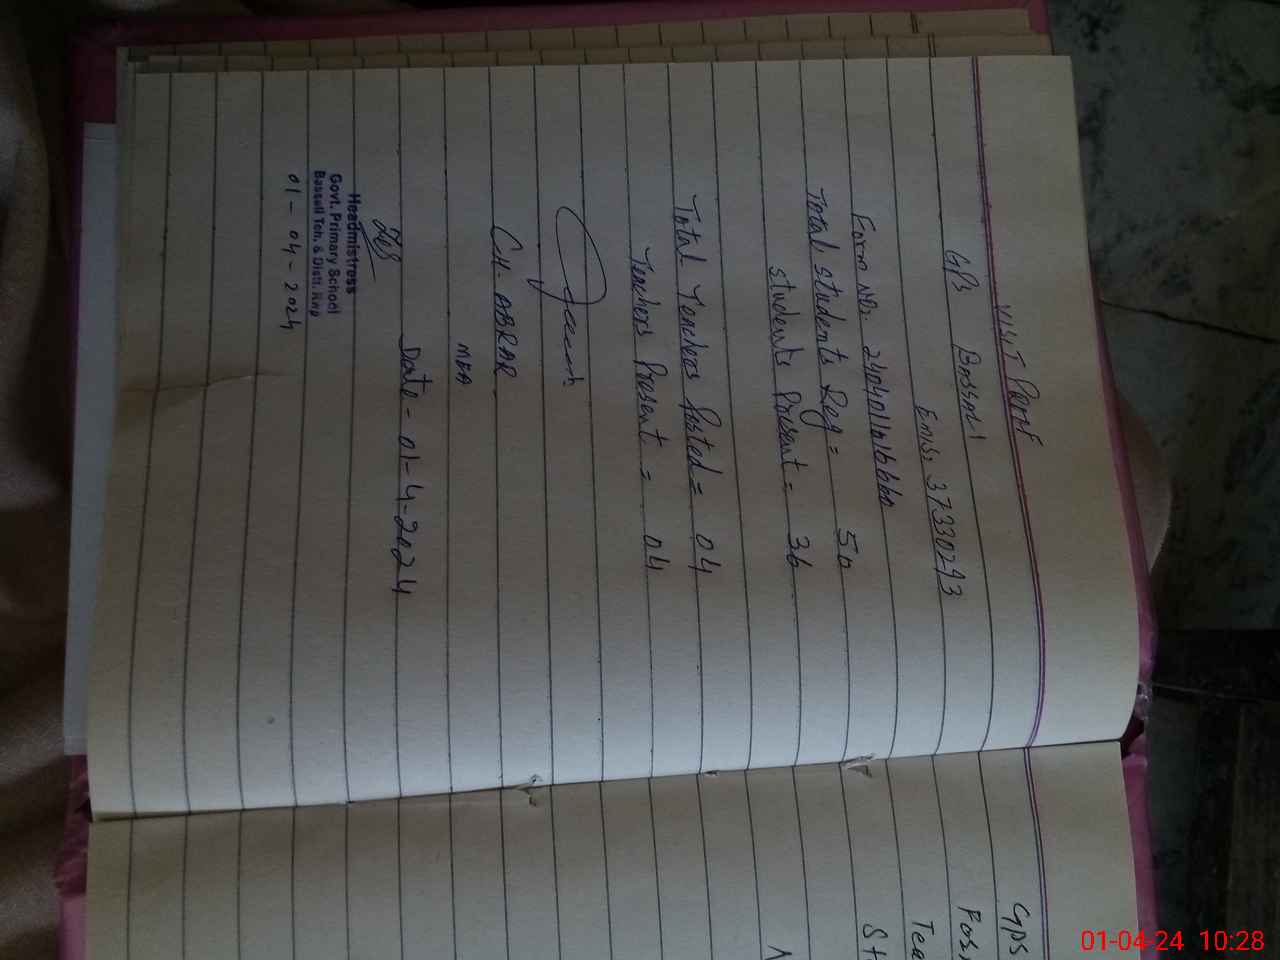 VISIT Proof
GPS Bassali
Emis. 37330293
Form No:
Total students Reg = 50
students Present = 36
Total Teachers Posted = 04
Teachers Present = 04
CH. ABRAR
MEA
Date - 01-4-2024
Headmistress
Govt. Primary School
Bassali Teh. & Distt. Rwp
01-04-2024
GPS
01-04-24 10:28